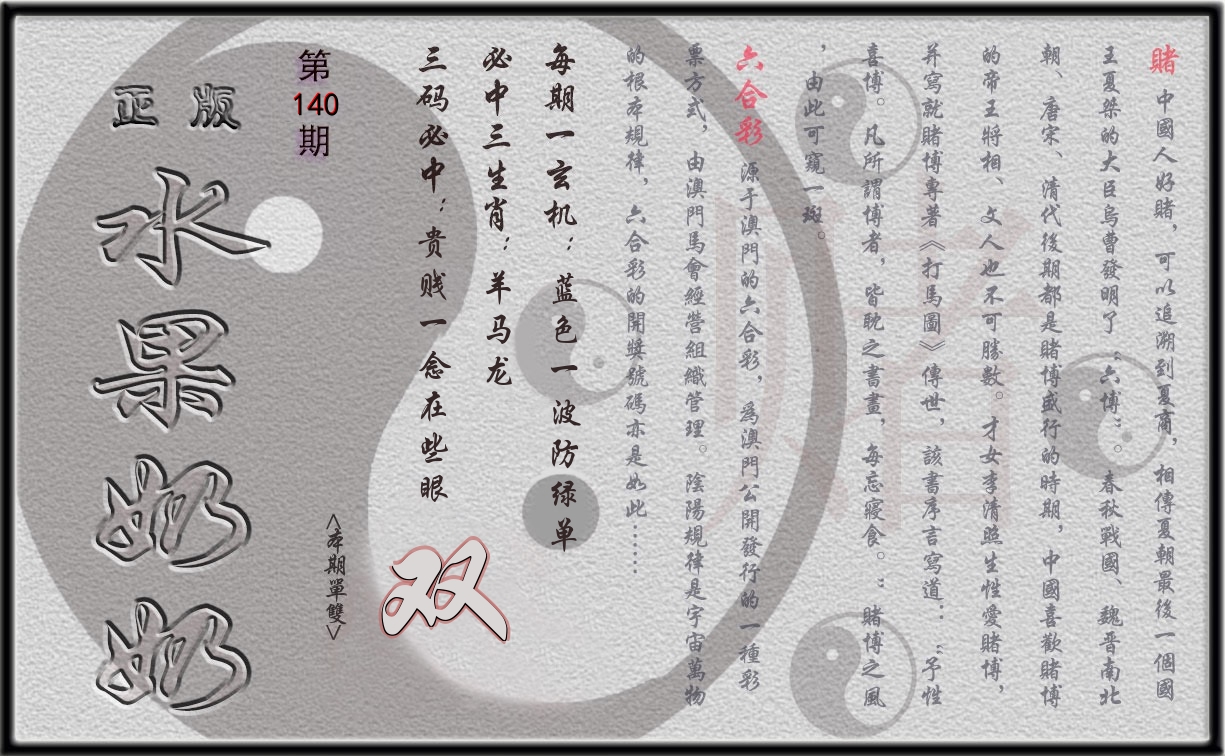 賭 中國人好賭，可以追溯到夏商，相傳夏朝最後一個國
王夏桀的大臣烏曹發明了“六博”。春秋戰國、魏晋南北
朝、唐宋、清代後期都是賭博盛行的時期，中國喜歡賭博
的帝王將相、文人也不可勝數。才女李清照生性愛賭博，
并寫就賭博專著《打馬圖》傳世，該書序言寫道：“予性
喜博。凡所謂博者，皆耽之書畫，每忘寢食。”賭博之風
，由此可窺一斑。
六合彩 源于澳門的六合彩，爲澳門公開發行的一種彩
票方式，由澳門馬會經營組織管理。陰陽規律是宇宙萬物
的根本規律，六合彩的開獎號碼亦是如此……
每期一玄机：蓝色一波防绿单
必中三生肖：羊马龙
三码必中：贵贱一念在些眼
双
<本期單雙>
第
140
期
正版
水果奶奶